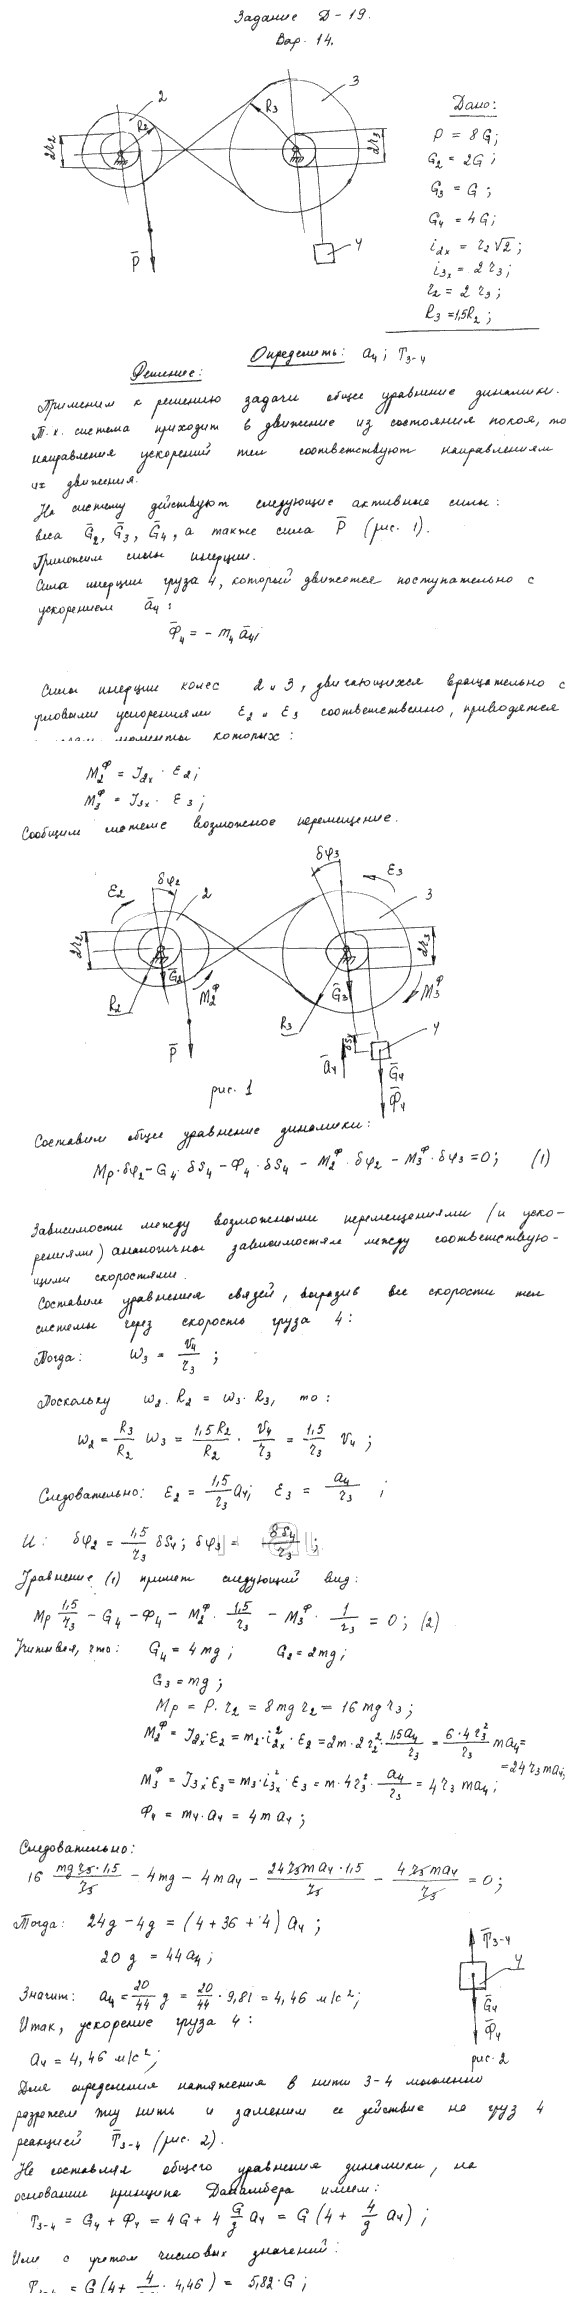 Задание Д-19.
Вар. 14.
2
R₂
R₃
3
2r₂
2r₃
P̄
4
Дано:
P = 8G;
G₂ = 2G;
G₃ = G;
G₄ = 4G;
i₂ₓ = r₂√2;
i₃ₓ = 2r₃;
r₂ = 2r₃;
R₃ = 1,5R₂;
Определить: a₄; T₃₋₄
Решение:
Применим к решению задачи общее уравнение динамики.
Т.к. система приходит в движение из состояния покоя, то
направления ускорений тел соответствуют направлениям
их движения.
На систему действуют следующие активные силы:
веса Ḡ₂, Ḡ₃, Ḡ₄, а также сила P̄ (рис. 1).
Приложим силы инерции.
Сила инерции груза 4, который движется поступательно с
ускорением ā₄:
Φ̄₄ = - m₄ā₄;
Силы инерции колес 2 и 3, двигающихся вращательно с
угловыми ускорениями ε₂ и ε₃ соответственно, приводятся
моменты которых:
M₂ᶲ = J₂ₓ · ε₂;
M₃ᶲ = J₃ₓ · ε₃;
Сообщим системе возможное перемещение.
δφ₃
ε₃
δφ₂
ε₂
2
3
2r₂
2r₃
Ḡ₂
M₂ᶲ
Ḡ₃
M₃ᶲ
R₂
R₃
δS₄
4
P̄
ā₄
Ḡ₄
Φ̄₄
рис. 1
Составим общее уравнение динамики:
Mp·δφ₂ - G₄·δS₄ - Φ₄·δS₄ - M₂ᶲ·δφ₂ - M₃ᶲ·δφ₃ = 0; (1)
Зависимости между возможными перемещениями (и уско-
рениями) аналогичны зависимостям между соответствую-
щими скоростями.
Составим уравнения связей, выразив все скорости тел
системы через скорость груза 4:
Тогда: ω₃ = V₄/r₃;
Поскольку ω₂·R₂ = ω₃·R₃, то:
ω₂ = R₃/R₂ ω₃ = 1,5R₂/R₂ · V₄/r₃ = 1,5/r₃ V₄;
Следовательно: ε₂ = 1,5/r₃ a₄; ε₃ = a₄/r₃;
И: δφ₂ = 1,5/r₃ δS₄; δφ₃ = δS₄/r₃;
Уравнение (1) примет следующий вид:
Mp 1,5/r₃ - G₄ - Φ₄ - M₂ᶲ · 1,5/r₃ - M₃ᶲ · 1/r₃ = 0; (2)
Учитывая, что: G₄ = 4mg; G₂ = 2mg;
G₃ = mg;
Mp = P·r₂ = 8mgr₂ = 16mgr₃;
M₂ᶲ = J₂ₓ·ε₂ = m₂·i₂ₓ²·ε₂ = 2m·2r₂²·1,5a₄/r₃ = 6·4r₃²/r₃ ma₄ =
= 24r₃ma₄;
M₃ᶲ = J₃ₓ·ε₃ = m₃·i₃ₓ²·ε₃ = m·4r₃²·a₄/r₃ = 4r₃ma₄;
Φ₄ = m₄·a₄ = 4ma₄;
Следовательно:
16 mgr₃·1,5/r₃ - 4mg - 4ma₄ - 24r₃ma₄·1,5/r₃ - 4r₃ma₄/r₃ = 0;
Тогда: 24g - 4g = (4 + 36 + 4)a₄;
20g = 44a₄;
Значит: a₄ = 20/44 g = 20/44 · 9,81 = 4,46 м/с²;
Итак, ускорение груза 4:
a₄ = 4,46 м/с²;
T̄₃₋₄
4
Ḡ₄
Φ̄₄
рис. 2
Для определения натяжения в нити 3-4 мысленно
разрежем эту нить и заменим ее действие на груз 4
реакцией T̄₃₋₄ (рис. 2).
Не составляя общего уравнения динамики, на
основании принципа Даламбера имеем:
T₃₋₄ = G₄ + Φ₄ = 4G + 4 G/g a₄ = G(4 + 4/g a₄);
Или с учетом числовых значений:
= G(4 + 4/ · 4,46) = 5,82·G;